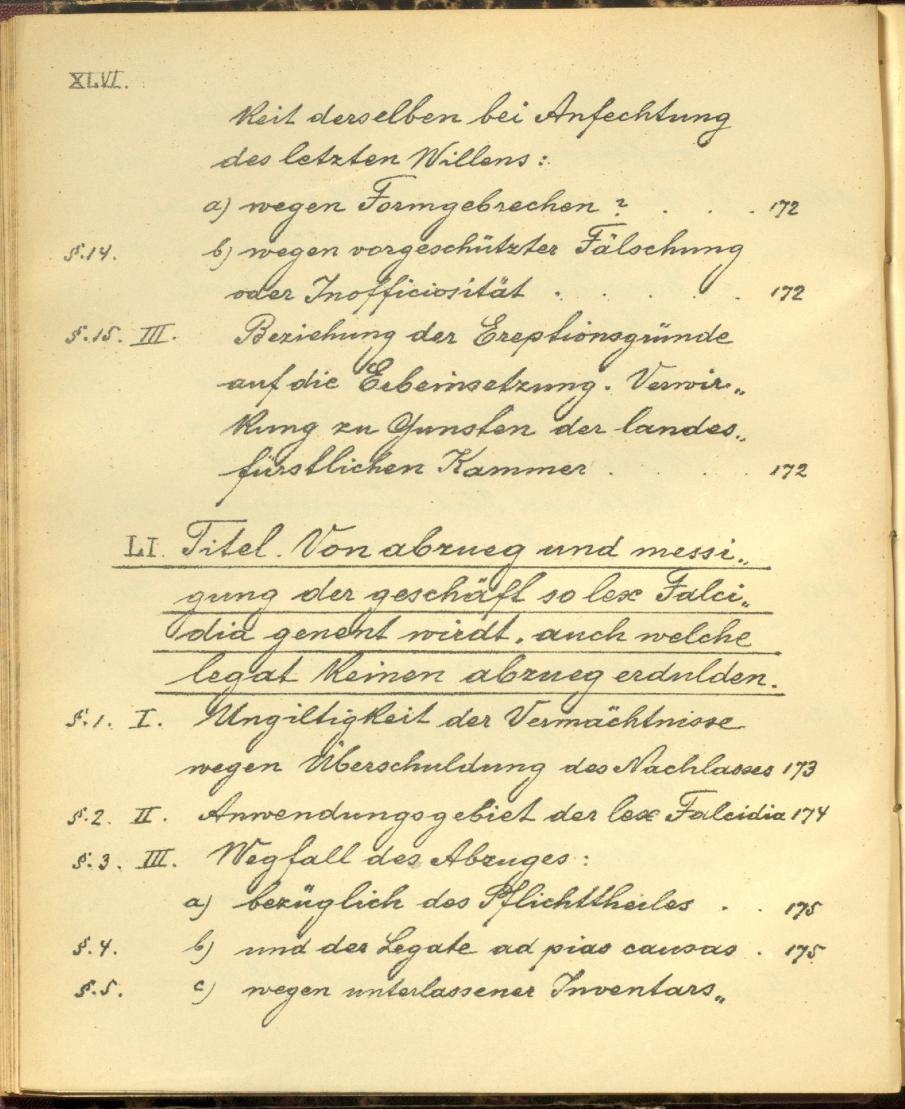 XLVI.
keit derselben bei Anfechtung
des letzten Willens:
a) wegen Formgebrechen? . . . 172
§.14. b) wegen vorgeschützter Fälschung
oder Inofficiosität . . . . . 172
§.15. III. Beziehung der Ereptionsgründe
auf die Erbeinsetzung. Verwir„
kung zu Gunsten der landes„
fürstlichen Kammer . . . . 172
LI. Titel. Von abzueg und messi„
gung der geschäft so lex Falci„
dia genent wirdt, auch welche
legat keinen abzueg erdulden.
§.1. I. Ungiltigkeit der Vermächtnisse
wegen Überschuldung des Nachlasses 173
§.2. II. Anwendungsgebiet der lex Falcidia 174
§.3. III. Wegfall des Abzuges:
a) bezüglich des Pflichttheiles . . 175
§.4. b) und der Legate ad pias causas . 175
§.5. c) wegen unterlassener Inventars„